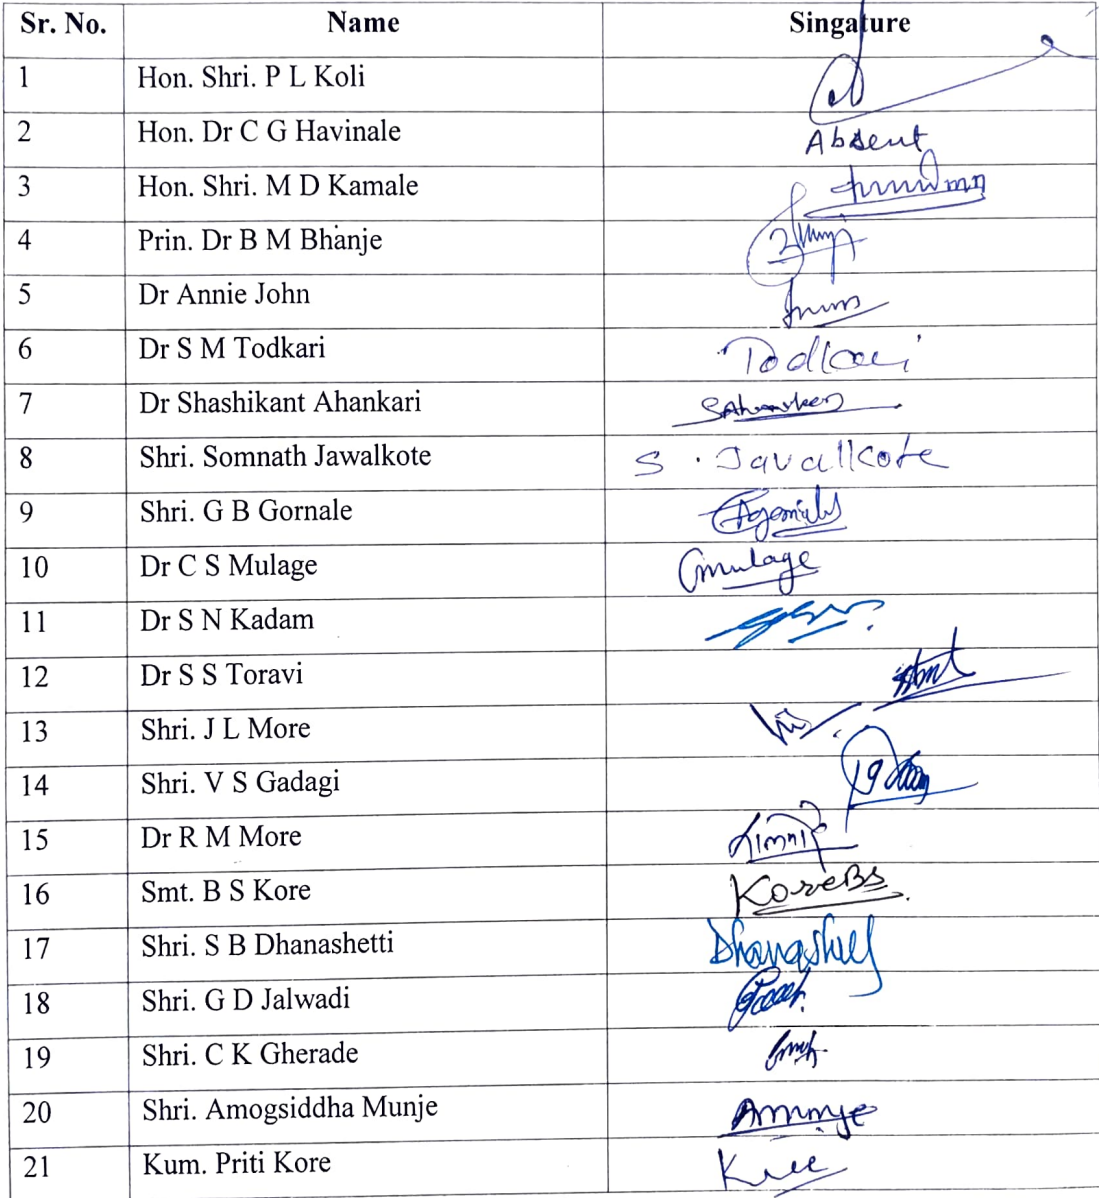 Sr. No. Name Singature
1 Hon. Shri. P L Koli
2 Hon. Dr C G Havinale Absent
3 Hon. Shri. M D Kamale
4 Prin. Dr B M Bhanje
5 Dr Annie John
6 Dr S M Todkari Todkari
7 Dr Shashikant Ahankari
8 Shri. Somnath Jawalkote S. Javallkote
9 Shri. G B Gornale
10 Dr C S Mulage Cmulage
11 Dr S N Kadam
12 Dr S S Toravi
13 Shri. J L More
14 Shri. V S Gadagi
15 Dr R M More
16 Smt. B S Kore KoreBS.
17 Shri. S B Dhanashetti
18 Shri. G D Jalwadi
19 Shri. C K Gherade
20 Shri. Amogsiddha Munje
21 Kum. Priti Kore